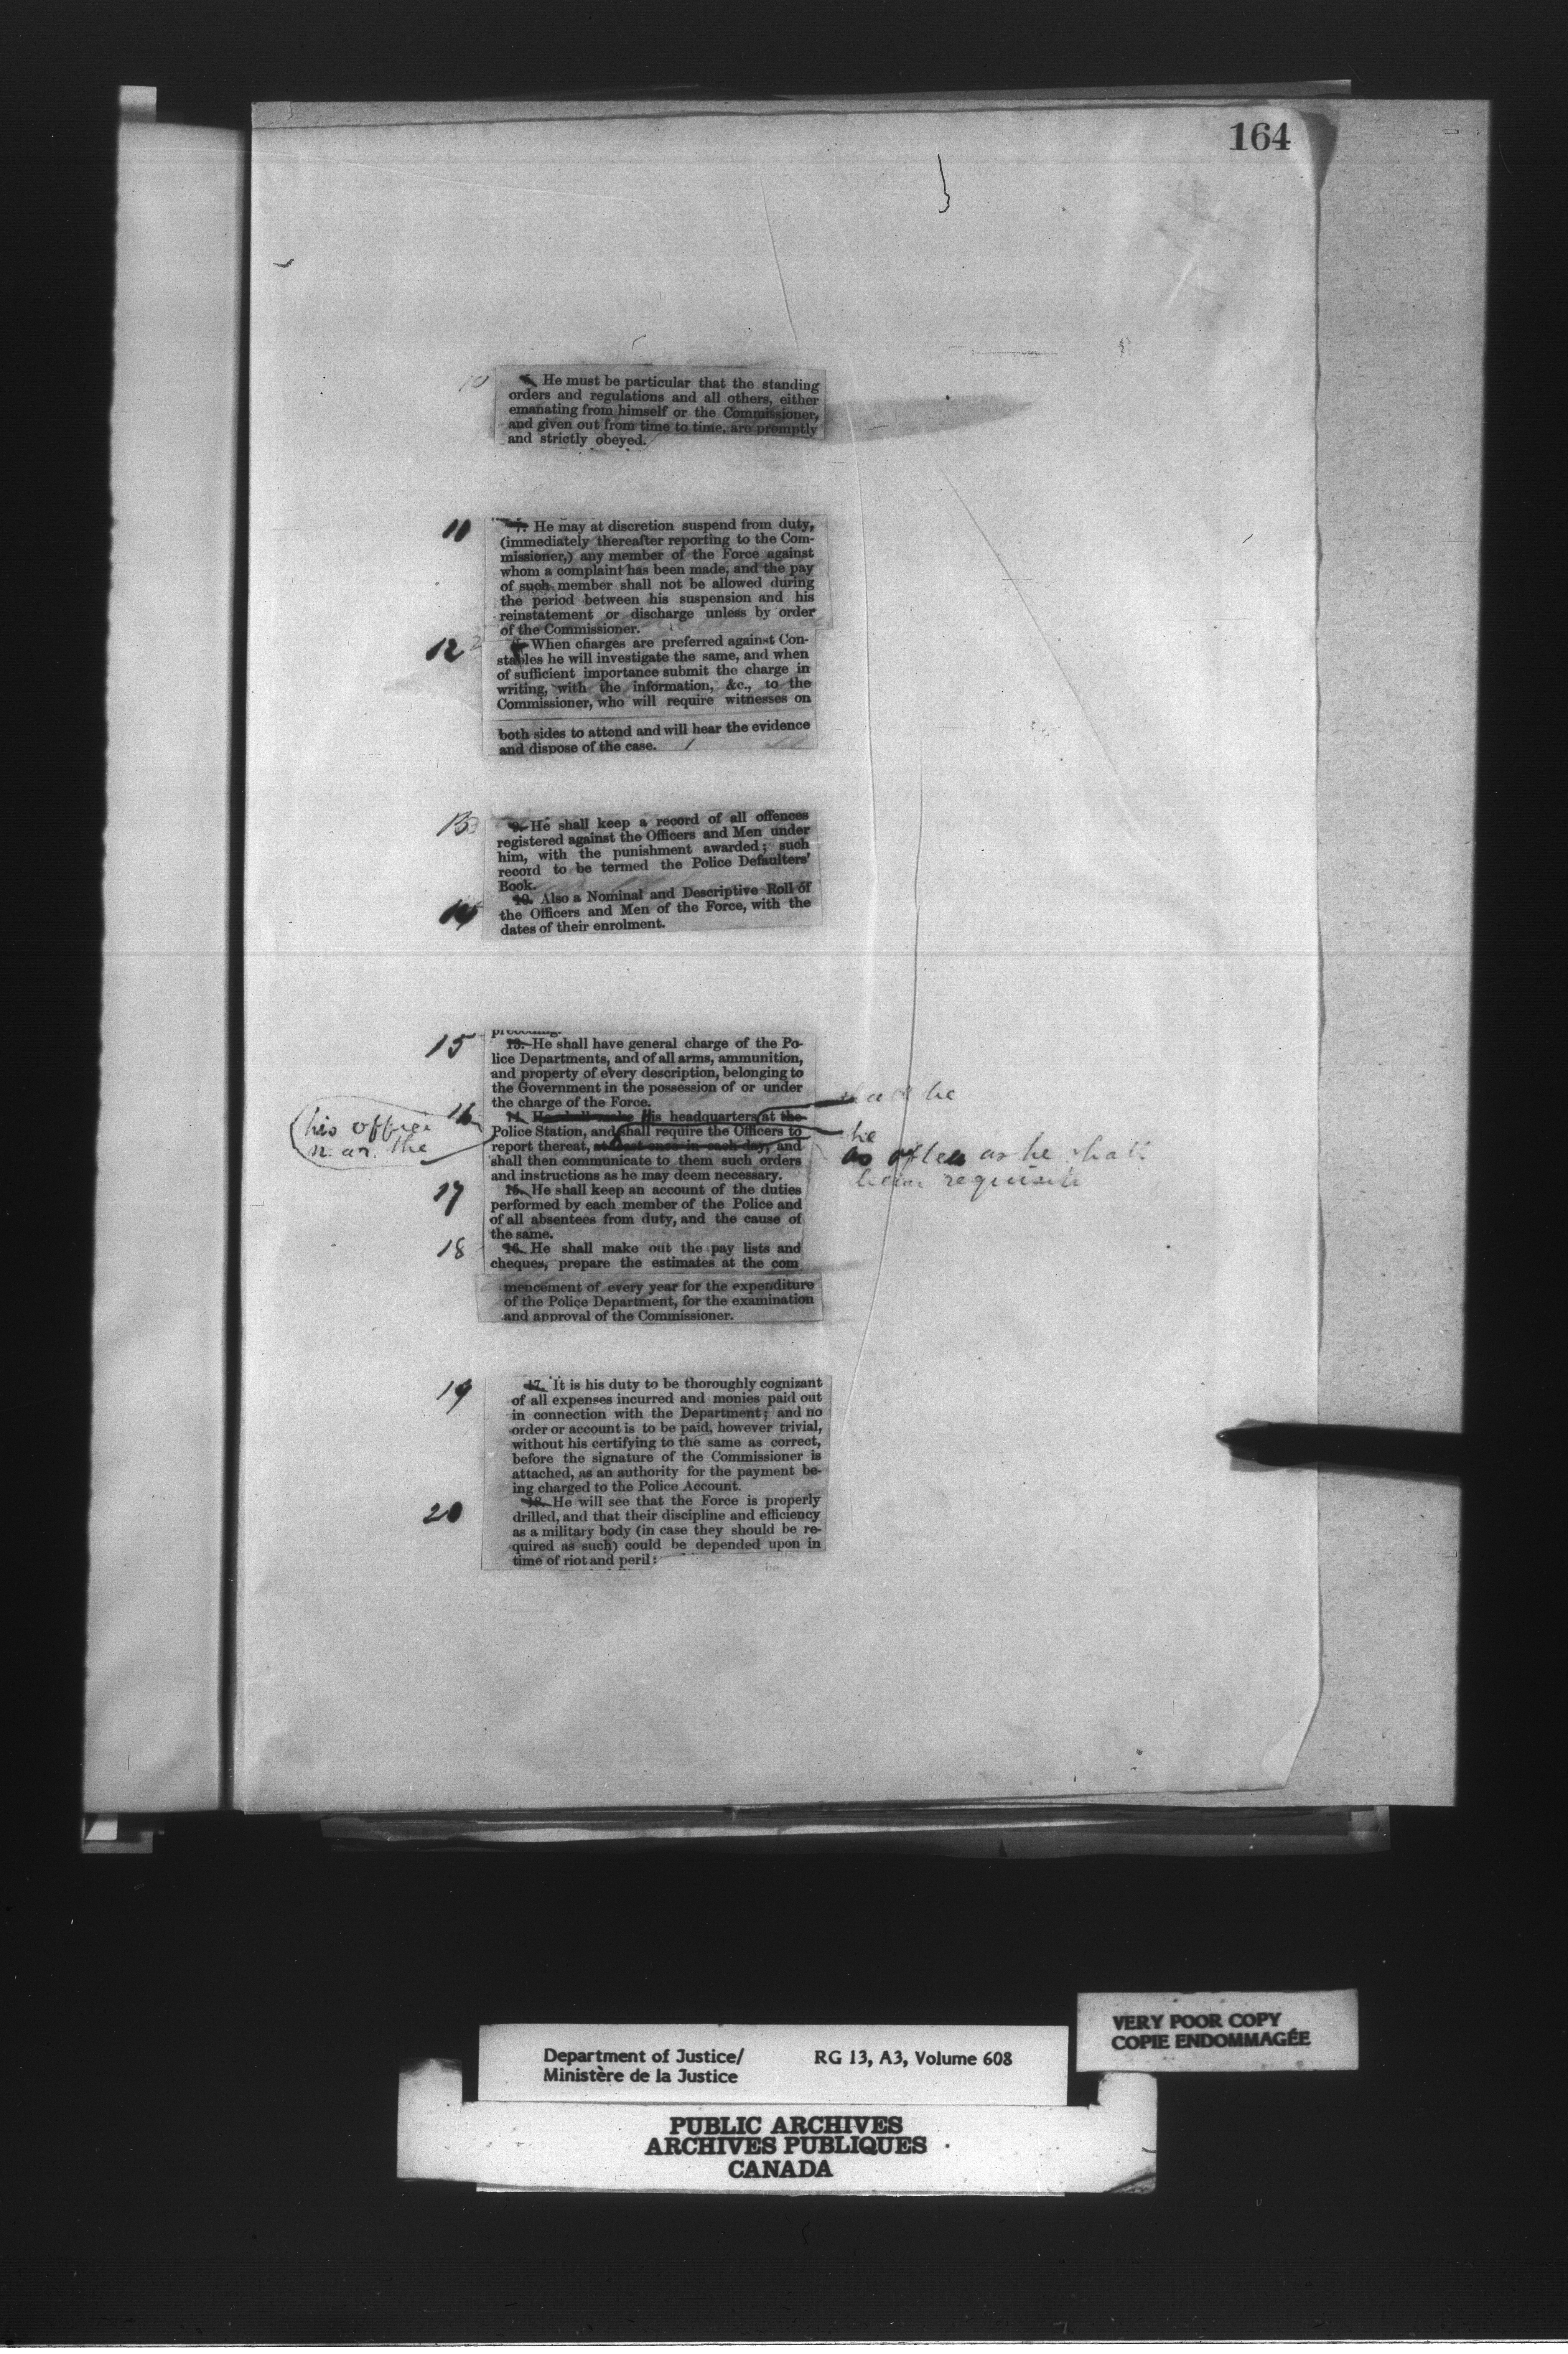 164
10 He must be particular that the standing
orders and regulations and all others, either
emanating from himself or the Commissioner,
and given out from time to time, are promptly
and strictly obeyed.
11 7. He may at discretion suspend from duty,
(immediately thereafter reporting to the Com-
missioner,) any member of the Force against
whom a complaint has been made, and the pay
of such member shall not be allowed during
the period between his suspension and his
reinstatement or discharge unless by order
of the Commissioner.
12 When charges are preferred against Con-
stables he will investigate the same, and when
of sufficient importance submit the charge in
writing, with the information, &c., to the
Commissioner, who will require witnesses on
both sides to attend and will hear the evidence
and dispose of the case.
13 9. He shall keep a record of all offences
registered against the Officers and Men under
him, with the punishment awarded; such
record to be termed the Police Defaulters'
Book.
14 10. Also a Nominal and Descriptive Roll of
the Officers and Men of the Force, with the
dates of their enrolment.
preceding.
15 13. He shall have general charge of the Po-
lice Departments, and of all arms, ammunition,
and property of every description, belonging to
the Government in the possession of or under
the charge of the Force.
16 14. He shall make his headquarters at the
shall be
his office
near the
Police Station, and shall require the Officers to
he
report thereat, at least once in each day, and
as often as he shall
requisite
shall then communicate to them such orders
and instructions as he may deem necessary.
17 15. He shall keep an account of the duties
performed by each member of the Police and
of all absentees from duty, and the cause of
the same.
18 16. He shall make out the pay lists and
cheques, prepare the estimates at the com
mencement of every year for the expenditure
of the Police Department, for the examination
and approval of the Commissioner.
19 17. It is his duty to be thoroughly cognizant
of all expenses incurred and monies paid out
in connection with the Department; and no
order or account is to be paid, however trivial,
without his certifying to the same as correct,
before the signature of the Commissioner is
attached, as an authority for the payment be-
ing charged to the Police Account.
20 18. He will see that the Force is properly
drilled, and that their discipline and efficiency
as a military body (in case they should be re-
quired as such) could be depended upon in
time of riot and peril:
VERY POOR COPY
COPIE ENDOMMAGÉE
Department of Justice/ RG 13, A3, Volume 608
Ministère de la Justice
PUBLIC ARCHIVES
ARCHIVES PUBLIQUES
CANADA